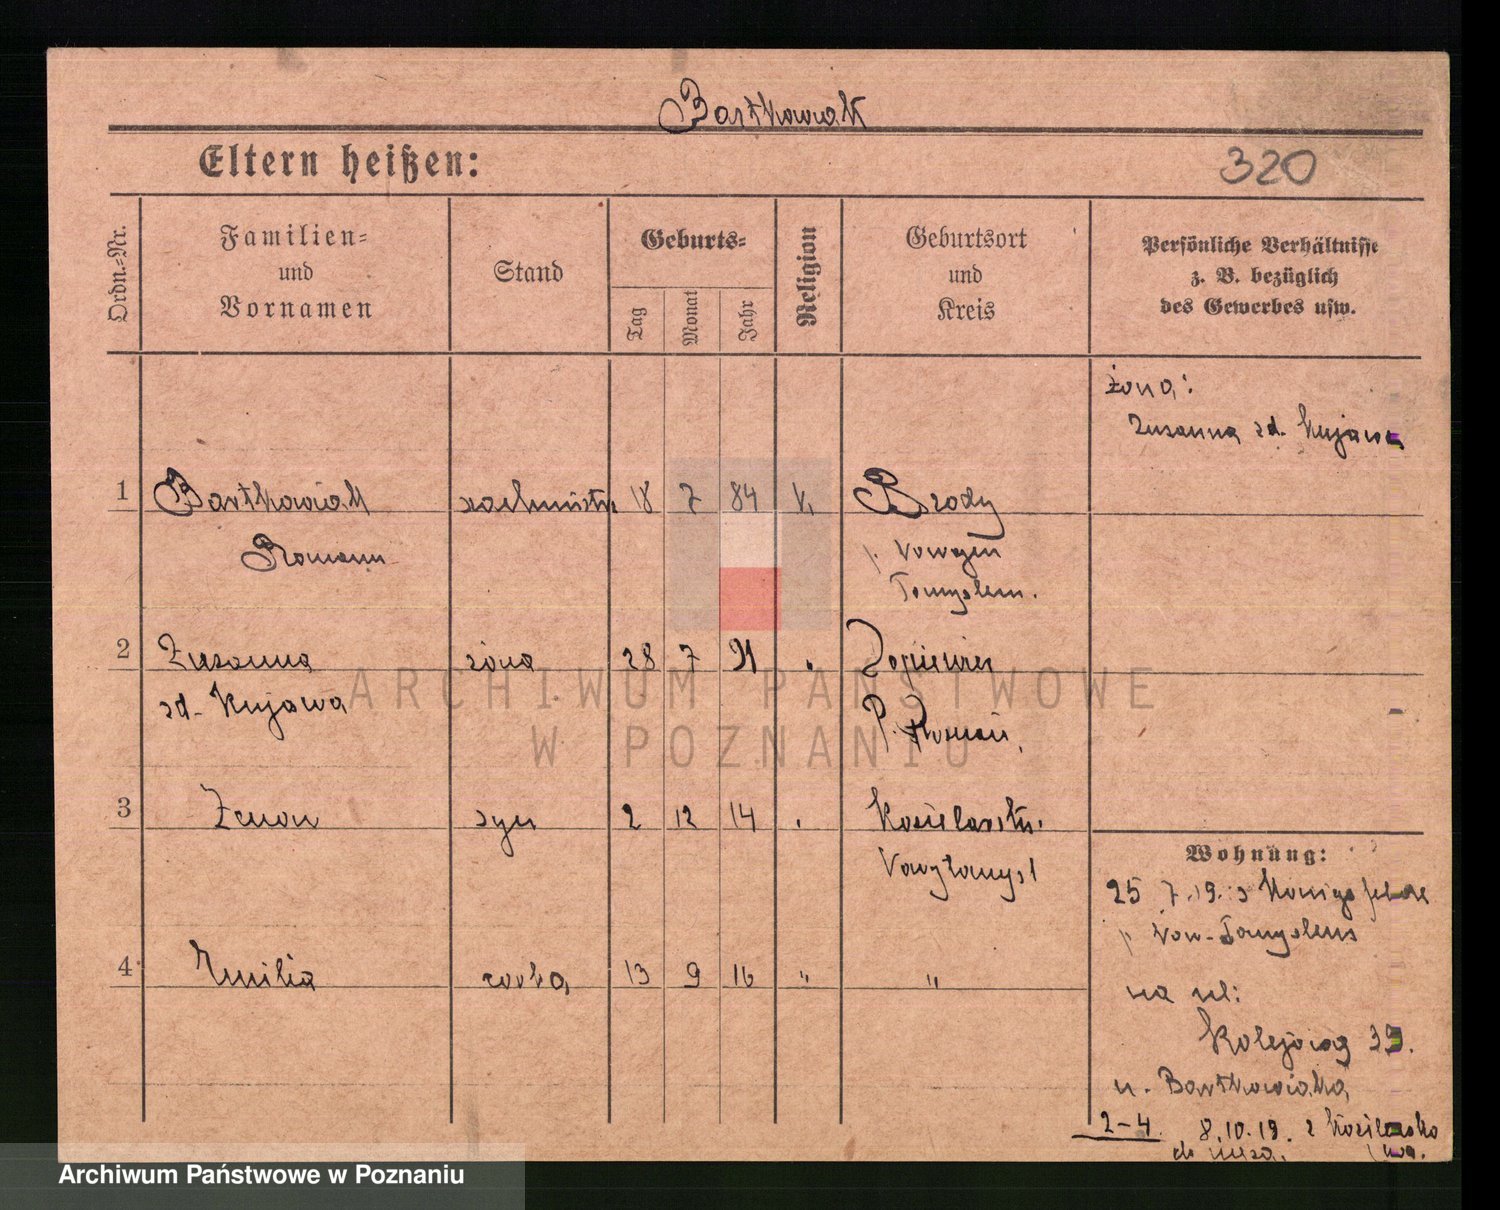 Bartkowiak
Eltern heißen:
320
Ordn.-Nr.
Familien-
und
Vornamen
Stand
Geburts-
Tag
Monat
Jahr
Religion
Geburtsort
und
Kreis
Persönliche Verhältnisse
z. B. bezüglich
des Gewerbes usw.
żona:
Zuzanna zd. Kujawa
1 Bartkowiak 18 7 84 k. Brody
Roman
p. Nowym
Tomyślem.
2 Zuzanna żona 28 7 91 "
zd. Kujawa
p. Poznań.
3 Zenon syn 2 12 14 "
Wohnung:
25 7.19. z Konigsfelde
p. Now-Tomyślem
4 Emilia córka 13 9 16 " "
na ul:
Kolejową 39.
u. Bartkowiaka
2-4 8.10.19. z
do męża.
ARCHIWUM PAŃSTWOWE
W POZNANIU
Archiwum Państwowe w Poznaniu